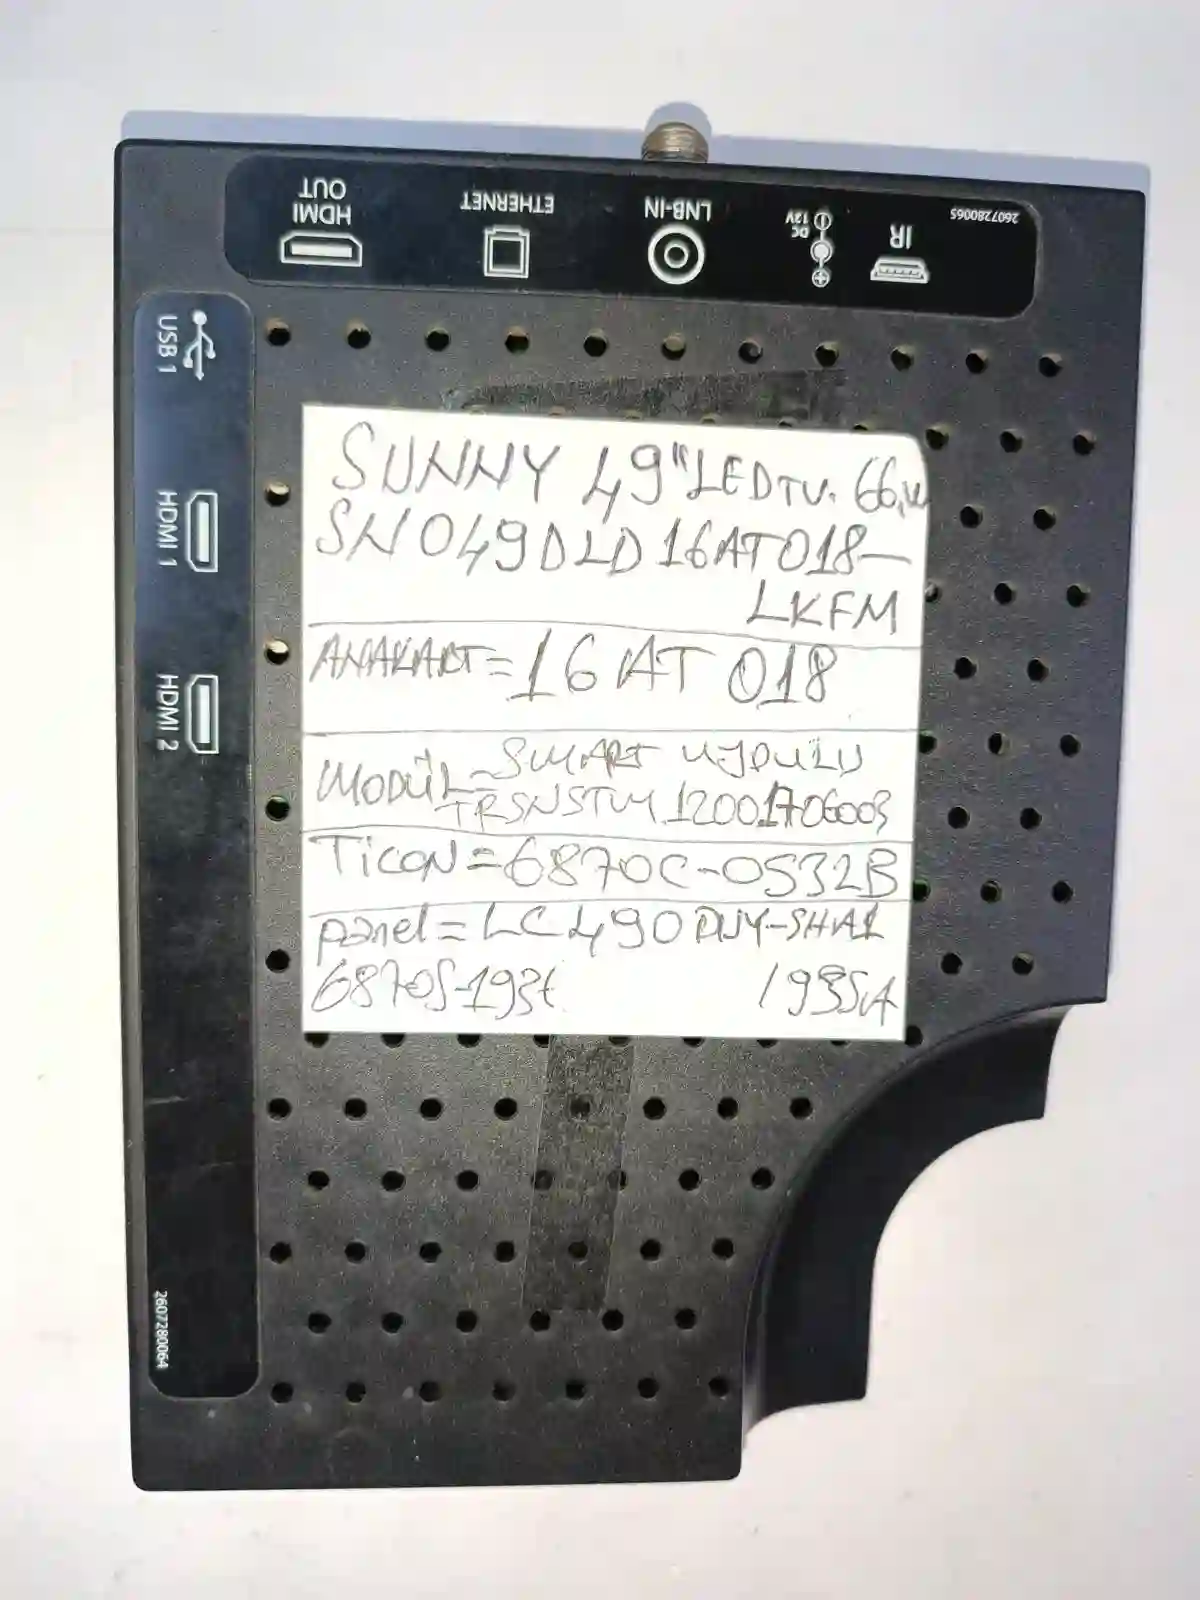 HDMI
OUT
ETHERNET
LNB-IN
DC
12V
IR
2607280065
USB 1
HDMI 1
HDMI 2
2607280064
SUNNY 49" LED TV. 66.W
SN049DLD16AT018-
LKFM
ANAKART=16AT 018
MODÜL=SMART UYDULU
TRSNSTVM 12001706003
TiCON=6870C-0532B
panel=LC490DUY-SHA1
6870S-193 1935A